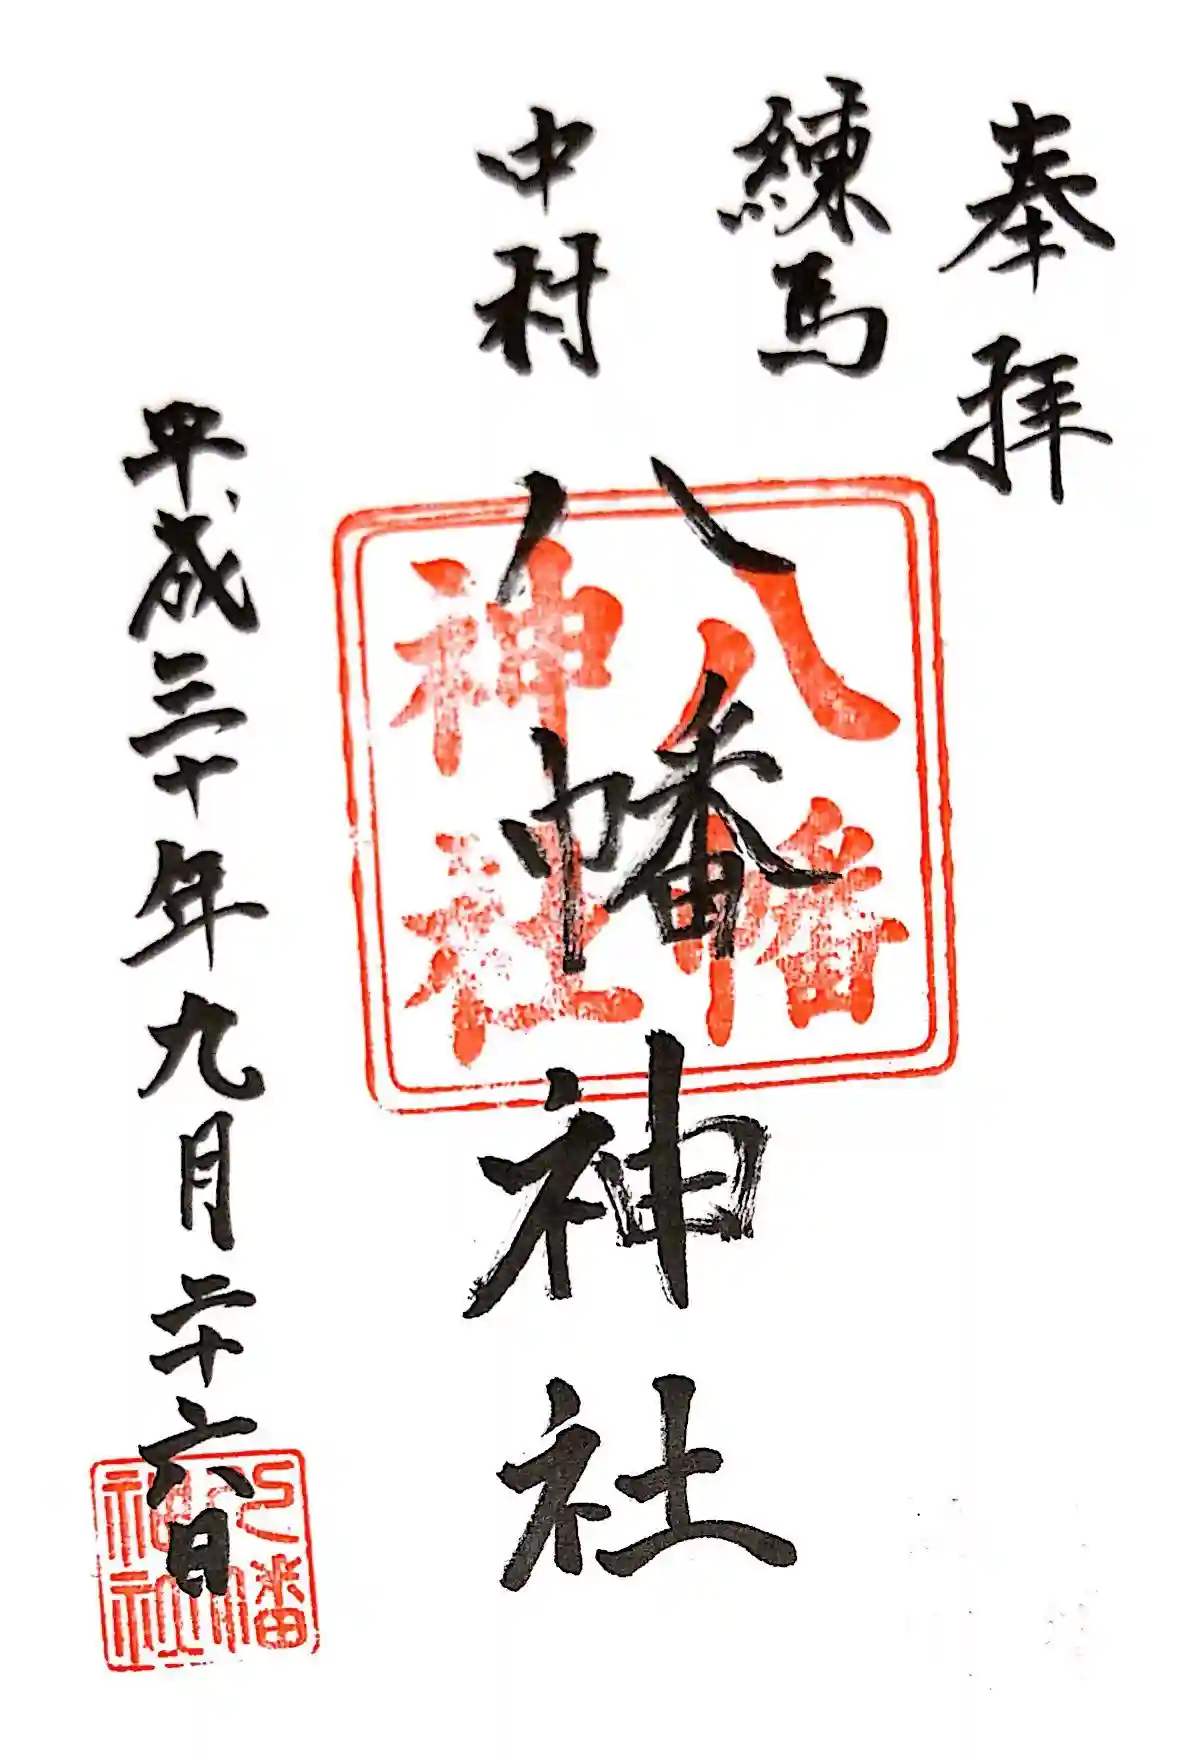 奉拝
練馬
中村
八幡神社
八幡
神社
平成三十年九月二十六日
八幡
神社